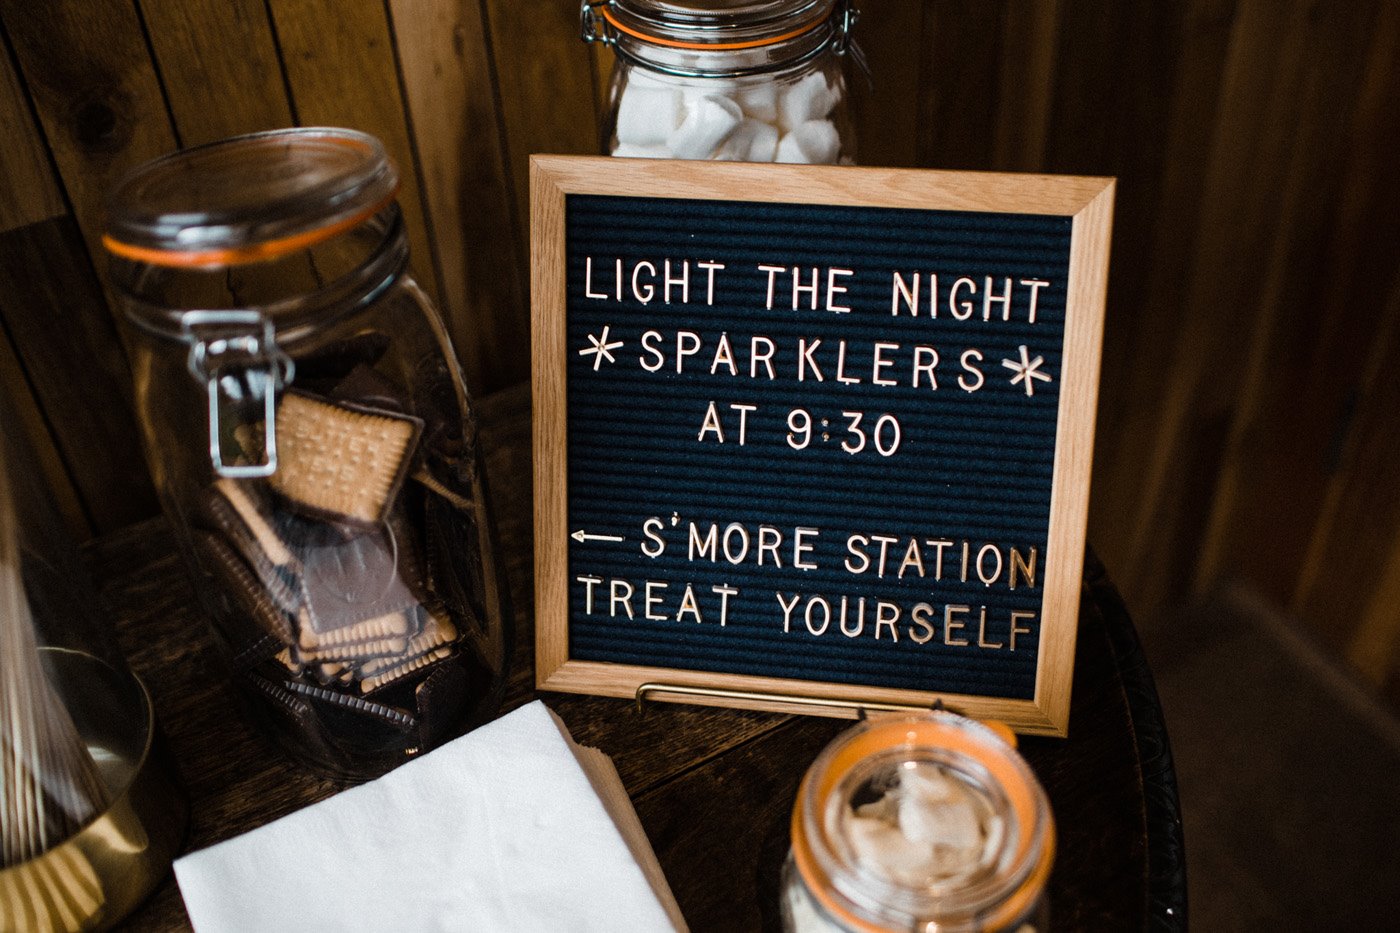 LIGHT THE NIGHT
* SPARKLERS *
AT 9:30
← S'MORE STATION
TREAT YOURSELF